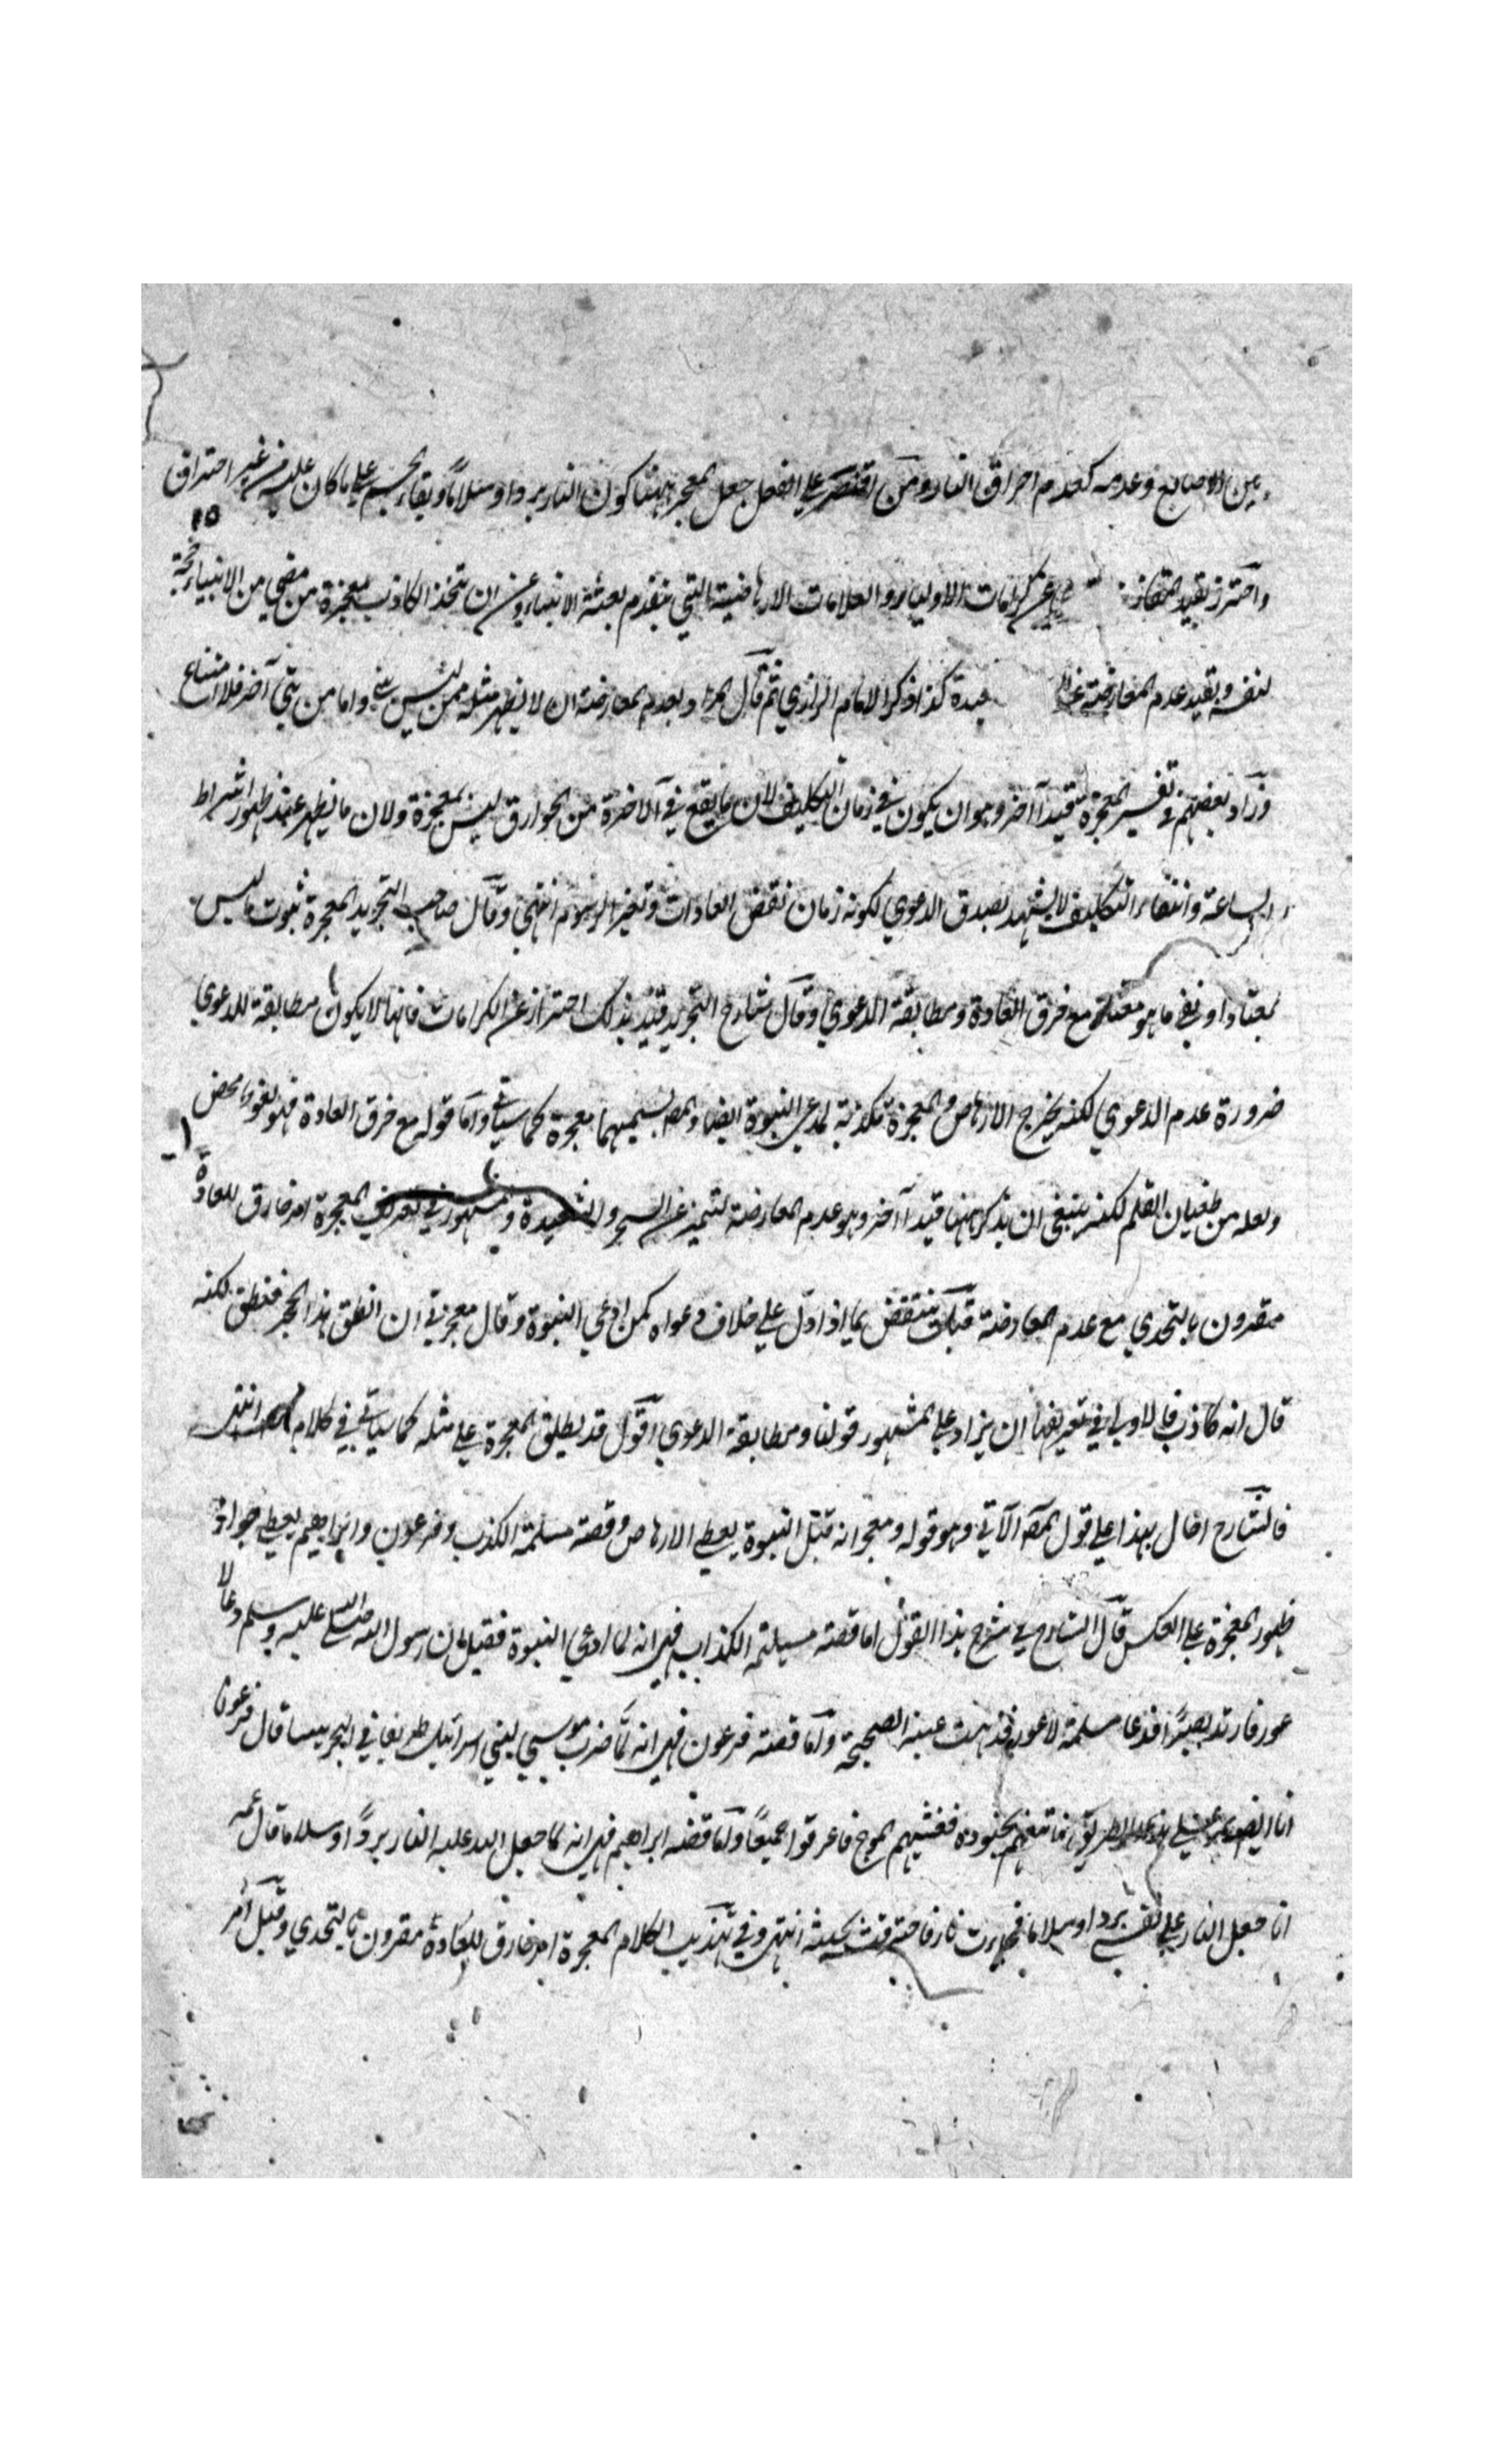 بين الاصابع وعدمه كعدم احراق النار ومن اقتصر على الفعل جعل المعجز ههنا كون النار بردا وسلاماً وبقاء الجسم على ما كان عليه من غير احتراق
واحترز بقيد المقارنة عن كرامات الاولياء والعلامات الارهاصية التي يتقدم بعثة الانبياء وعن ان يتخذ الكاذب معجزة من مضى من الانبياء حجة
لنفسه وبقيد عدم المعارضة عن كذا ذكر الامام الرازي ثم قال المراد بعدم المعارضة ان لا يظهر مثله ممن ليس بنبي واما من نبي آخر فلا امتناع
وزاد بعضهم في تفسير المعجزة قيدا آخر وهو ان يكون في زمان التكليف لان ما يقع في الآخرة من الخوارق ليس بمعجزة ولان ما يظهر عند ظهور اشراط
الساعة وانتفاء التكليف لا يشهد بصدق الدعوي لكونه زمان نقض العادات وتغير الرسوم انتهى وقال صاحب التجريد المعجزة ثبوت ما ليس
بمعتاد او نفي ما هو معتاد مع خرق العادة ومطابقة الدعوي وقال شارح التجريد قيد بذلك احترازا عن الكرامات فانها لا يكون مطابقة للدعوي
ضرورة عدم الدعوي لكنه يخرج الارهاص والمعجزة تكذبة لمدعي النبوة ايضا والمص يسميهما معجزة كما سيأتي واما قوله مع خرق العادة فهو لغو محض
ولعله من طغيان القلم لكنه ينبغي ان يذكر ههنا قيدا آخر وهو عدم المعارضة لتتميز عن السحر والشعبدة والمشهور في تعريف المعجزة امر خارق للعادة
مقرون بالتحدي مع عدم المعارضة قيل ينتقض بما اذا دل على خلاف دعواه كمن ادعى النبوة وقال معجزتي ان انطق هذا الحجر فنطق لكنه
قال انه كاذب فالاولى في تعريفها ان يزاد على المشهور قولنا ومطابقة الدعوي اقول قد يطلق المعجزة على مثله كما سيأتي في كلام المص انتهى
فالشارح احال بهذا على قول المص الآتي وهو قوله ومعجزاته قبل النبوة يعطي الارهاص وقصة مسلمة الكذب وفرعون وابراهيم يعطي جواز
ظهور المعجزة على العكس قال الشارح في شرح هذا القول اما قصة مسيلمة الكذاب فهي انه لما ادعى النبوة فقيل له ان رسول الله صلى الله عليه وسلم دعا لا
عور فارتد بصيرًا فدعا مسلمة لاعور فذهبت عينه الصحيحة واما قصة فرعون فهي انه لما ضرب موسي لبني اسرائيل طريقا في البحر يبسا قال فرعون
انا ايضا على هذا الطريق فاتبعهم بجنوده فغشيهم الموج فاغرقوا جميعًا واما قصة ابراهيم فهي انه لما جعل الله عليه النار بردًا وسلاما قال عمه
انا جعل النار على نفسي بردا وسلاما فجاءت نار فاحترقت لحيته انتهى وفي تهذيب الكلام المعجزة امر خارق للعادة مقرون بالتحدي وقيل امر